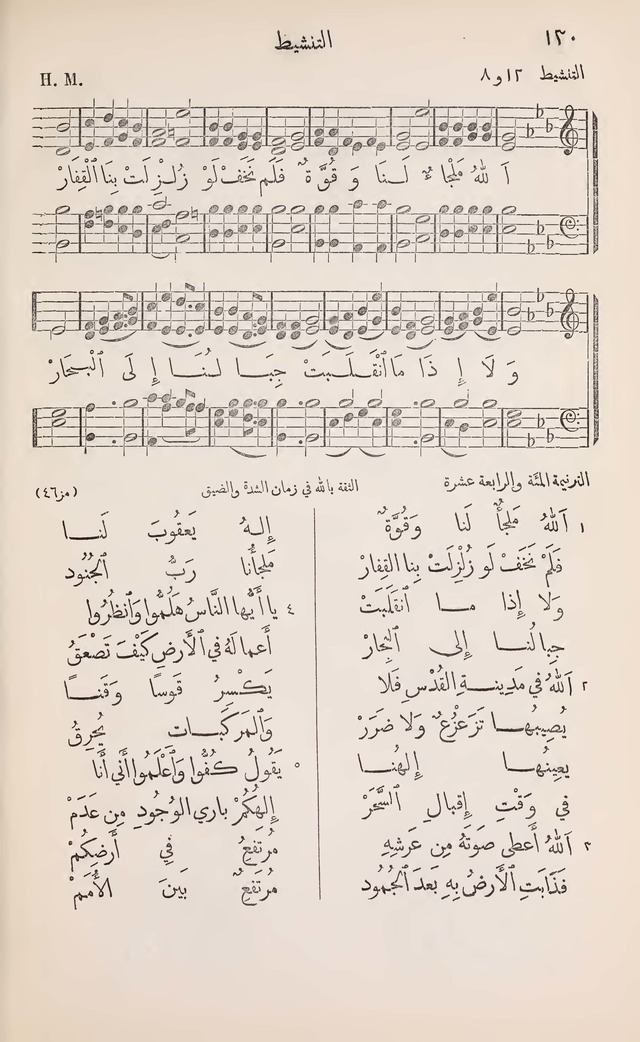 ١٣٠
التنشيط
التنشيط ١٢ و ٨
H. M.
اَللهُ مَلْجَاٌ لَـنَا وَ قُوَّةٌ فَلَم نَخَفْ لَوْ زُلْـزِلَتْ بِنَا الْقِفَارْ
وَ لَا إِ ذَا مَا انْقَـلَـبَتْ جِبَـا لُـنَـا إِ لَى الْبِـحَارْ
الترنيمة المئة والرابعة عشرة
الثقة بالله في زمان الشدة والضيق
(مز٤٦)
١ اَللهُ مَلْجَأٌ لَنَا وَقُوَّةٌ
فَلَمْ نَخَفْ لَو زُلْزِلَتْ بِنا القِفارْ
وَلا إِذا مـا انقَلَبَتْ
جِبالُنـا إِلى الْبِحارْ
٢ اَللهُ في مَدِينـةِ القُدْسِ فَلا
يُصِيبهـا تَزَعْزُعٌ وَلا ضَرَرْ
يعِينُهـا إِلهُنـا
في وَقْتِ إِقبالِ السَّحَرْ
٣ اَللهُ أَعطى صَوتَهُ مِن عَرشِهِ
فَذابَتِ الْأَرضُ بِهِ بَعدَ الْجُمُود
إِلـهُ يَعقُوبَ لَنـا
مَلجَأُنا رَبُّ الْجُنُود
٤ يا أَيُّها النَّاسُ هَلُمُّوا وَانْظُرُوا
أَعمالَهُ في الْأَرضِ كَيْفَ تَصْعَقُ
يَكْسِـرُ قَوسًا وَقَنـًا
وَالْمَركَبـات يُحرِقُ
٥ يَقُولُ كُفُّوا وَاعْلَمُوا أَنِّي أَنا
إِلهُكُمْ باري الوُجُودِ مِن عَدَمْ
مُرتَفِعٌ فِي أَرضِكُمْ
مُرتَفِعٌ بَينَ الأُمَمْ